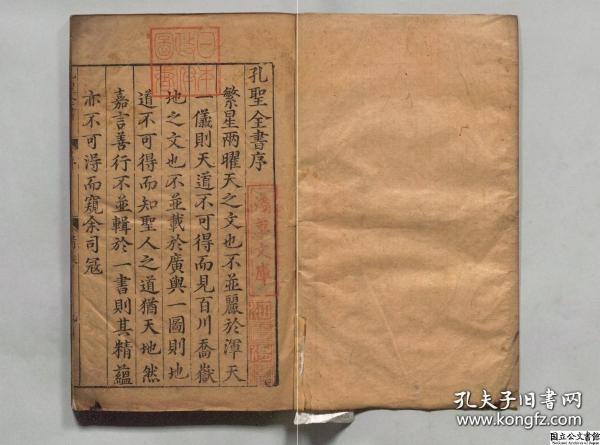 孔聖全書序
繁星兩曜天之文也不並麗於渾天
一儀則天道不可得而見百川喬嶽
地之文也不並載於廣輿一圖則地
道不可得而知聖人之道猶天地然
嘉言善行不並輯於一書則其精蘊
亦不可得而窺余司寇
日本
圖書
淺草文庫
孔夫子旧书网
www.kongfz.com
国立公文書館
National Archives of Japan